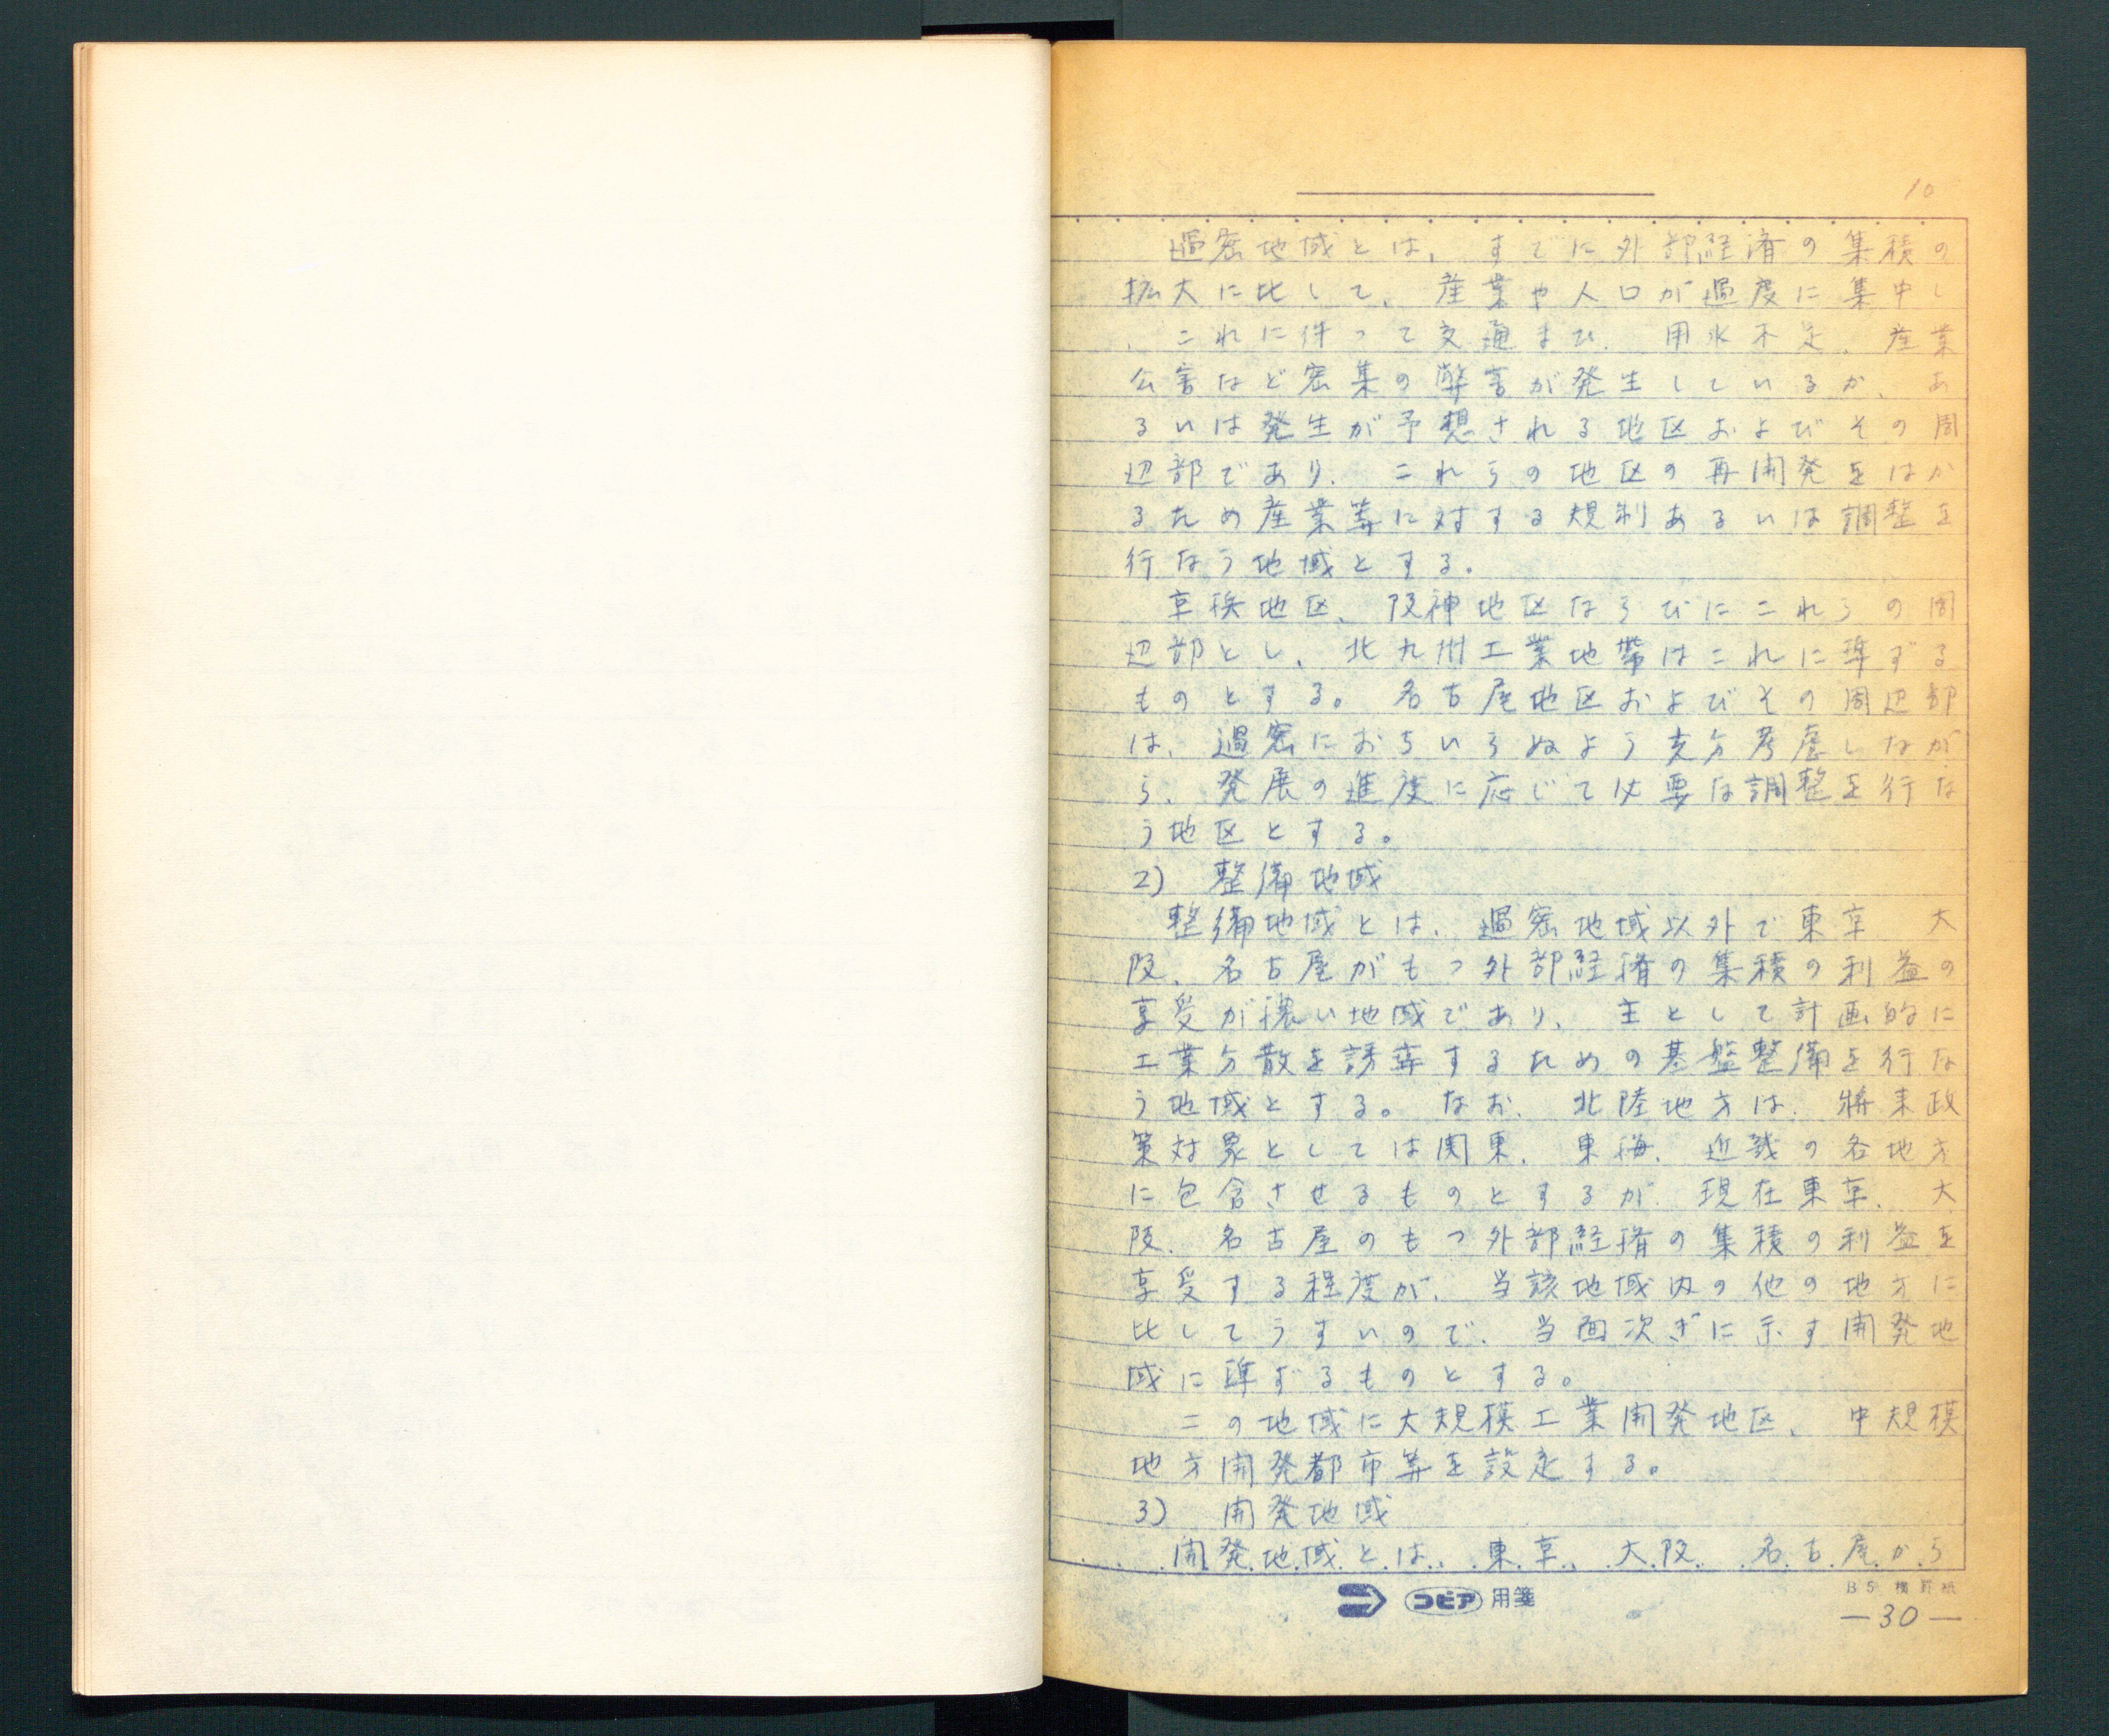 10
過密地域とは、すでに外部経済の集積の
拡大に比して、産業や人口が過度に集中し
、これに伴って交通まひ、用水不足、産業
公害など密集の弊害が発生しているか、あ
るいは発生が予想される地区およびその周
辺部であり、これらの地区の再開発をはか
るため産業等に対する規制あるいは調整を
行なう地域とする。
京浜地区、阪神地区ならびにこれらの周
辺部とし、北九州工業地帯はこれに準ずる
ものとする。名古屋地区およびその周辺部
は、過密におちいらぬよう充分考慮しなが
ら、発展の進度に応じて必要な調整を行な
う地区とする。
2) 整備地域
整備地域とは、過密地域以外で東京 大
阪、名古屋がもつ外部経済の集積の利益の
享受が濃い地域であり、主として計画的に
工業分散を誘導するための基盤整備を行な
う地域とする。なお、北陸地方は、将来政
策対象としては関東、東海、近畿の各地方
に包含させるものとするが、現在東京、大
阪、名古屋のもつ外部経済の集積の利益を
享受する程度が、当該地域内の他の地方に
比してうすいので、当面次ぎに示す開発地
域に準ずるものとする。
この地域に大規模工業開発地区、中規模
地方開発都市等を設定する。
3) 開発地域
開発地域とは、東京、大阪、名古屋から
コピア用箋
B5 横罫紙
—30—